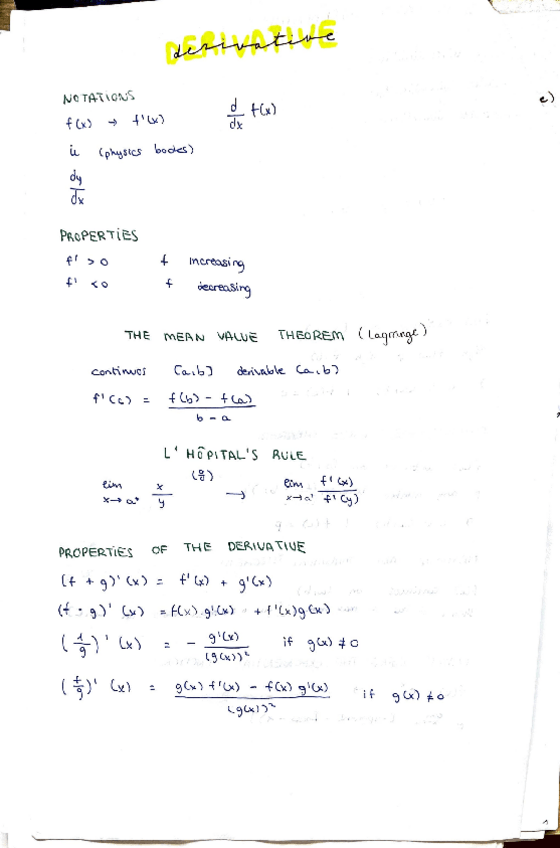 DERIVATIVE
derivative
NOTATIONS
f(x) → f'(x) d/dx f(x)
(physics books)
dy/dx
e)
PROPERTIES
f' > 0 f increasing
f' < 0 f decreasing
THE MEAN VALUE THEOREM (Lagrange)
continues [a,b] derivable (a,b)
f'(c) = f(b) - f(a) / b - a
L'HÔPITAL'S RULE
(0/0)
lim x→a⁺ x/y → lim x→a⁺ f'(x)/f'(y)
PROPERTIES OF THE DERIVATIVE
(f + g)'(x) = f'(x) + g'(x)
(f · g)'(x) = f(x).g'(x) + f'(x)g(x)
(1/g)'(x) = - g'(x)/(g(x))² if g(x) ≠ 0
(f/g)'(x) = g(x) f'(x) - f(x) g'(x) / (g(x))² if g(x) ≠ 0